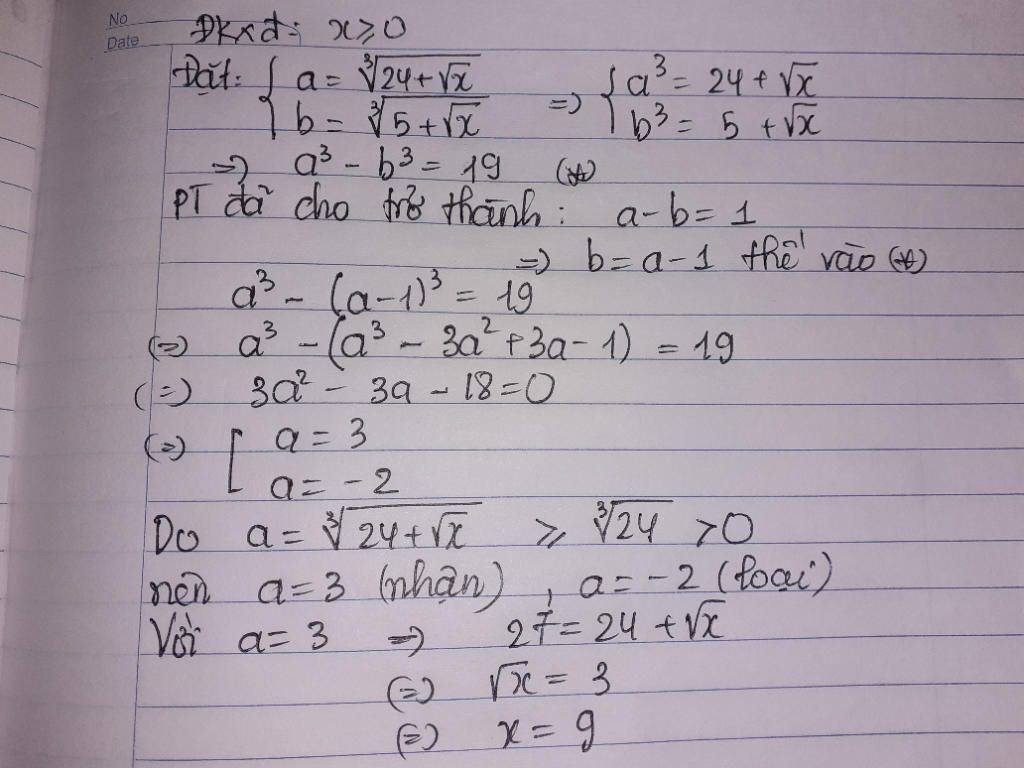 No
Date
Đkxđ: x ≥ 0
Đặt: { a = ∛(24+√x) => { a³ = 24 + √x
b = ∛(5+√x) b³ = 5 + √x
=> a³ - b³ = 19 (*)
PT đã cho trở thành: a - b = 1
=> b = a - 1 thế vào (*)
a³ - (a-1)³ = 19
(=) a³ - (a³ - 3a² + 3a - 1) = 19
(=) 3a² - 3a - 18 = 0
(=) [ a = 3
a = -2
Do a = ∛(24+√x) ≥ ∛24 > 0
nên a = 3 (nhận), a = -2 (loại)
Với a = 3 => 27 = 24 + √x
(=) √x = 3
(=) x = 9